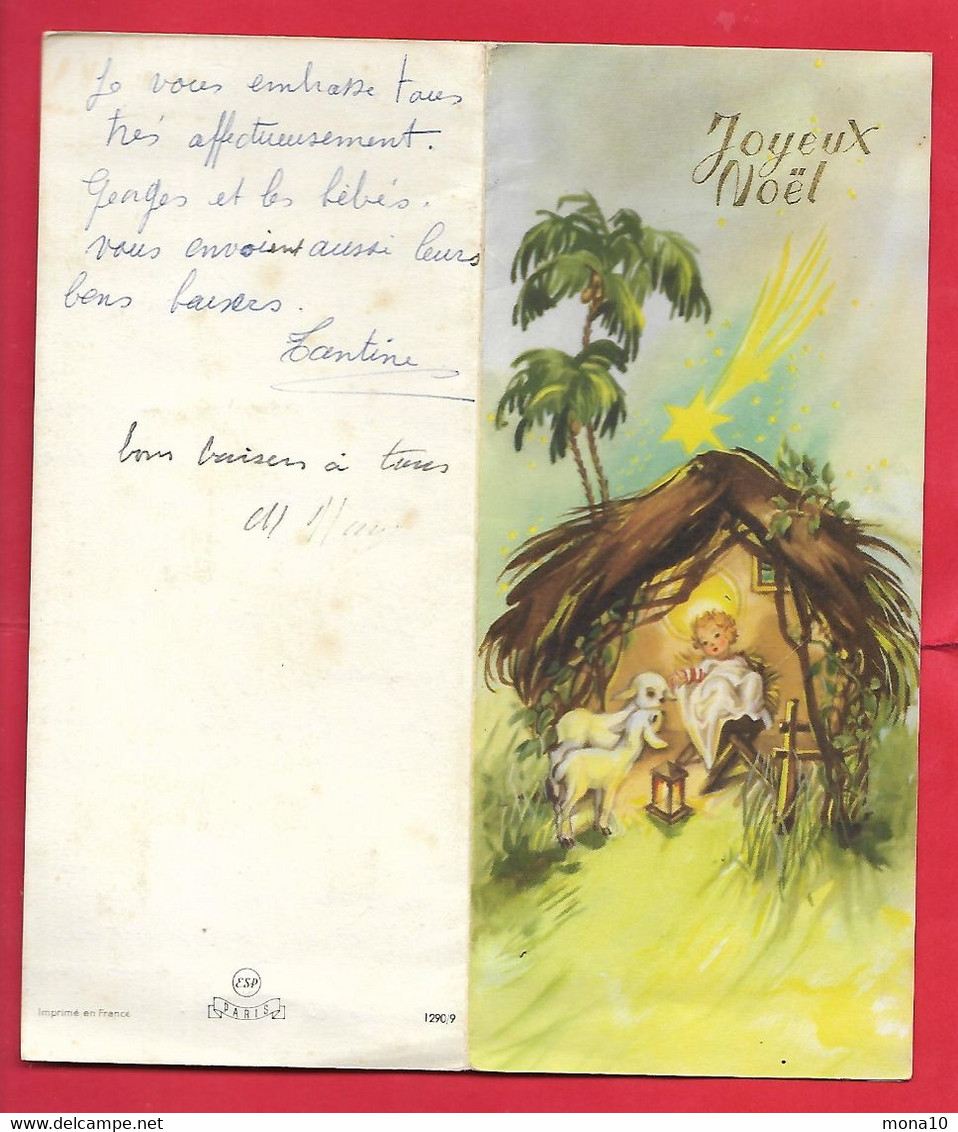 Je vous embrasse tous
très affectueusement.
Georges et les bébés.
vous envoient aussi leurs
bons baisers.
Tantine
bons baisers à tous
M
ESP
PARIS
Imprimé en France
1290/9
Joyeux
Noël
mona10